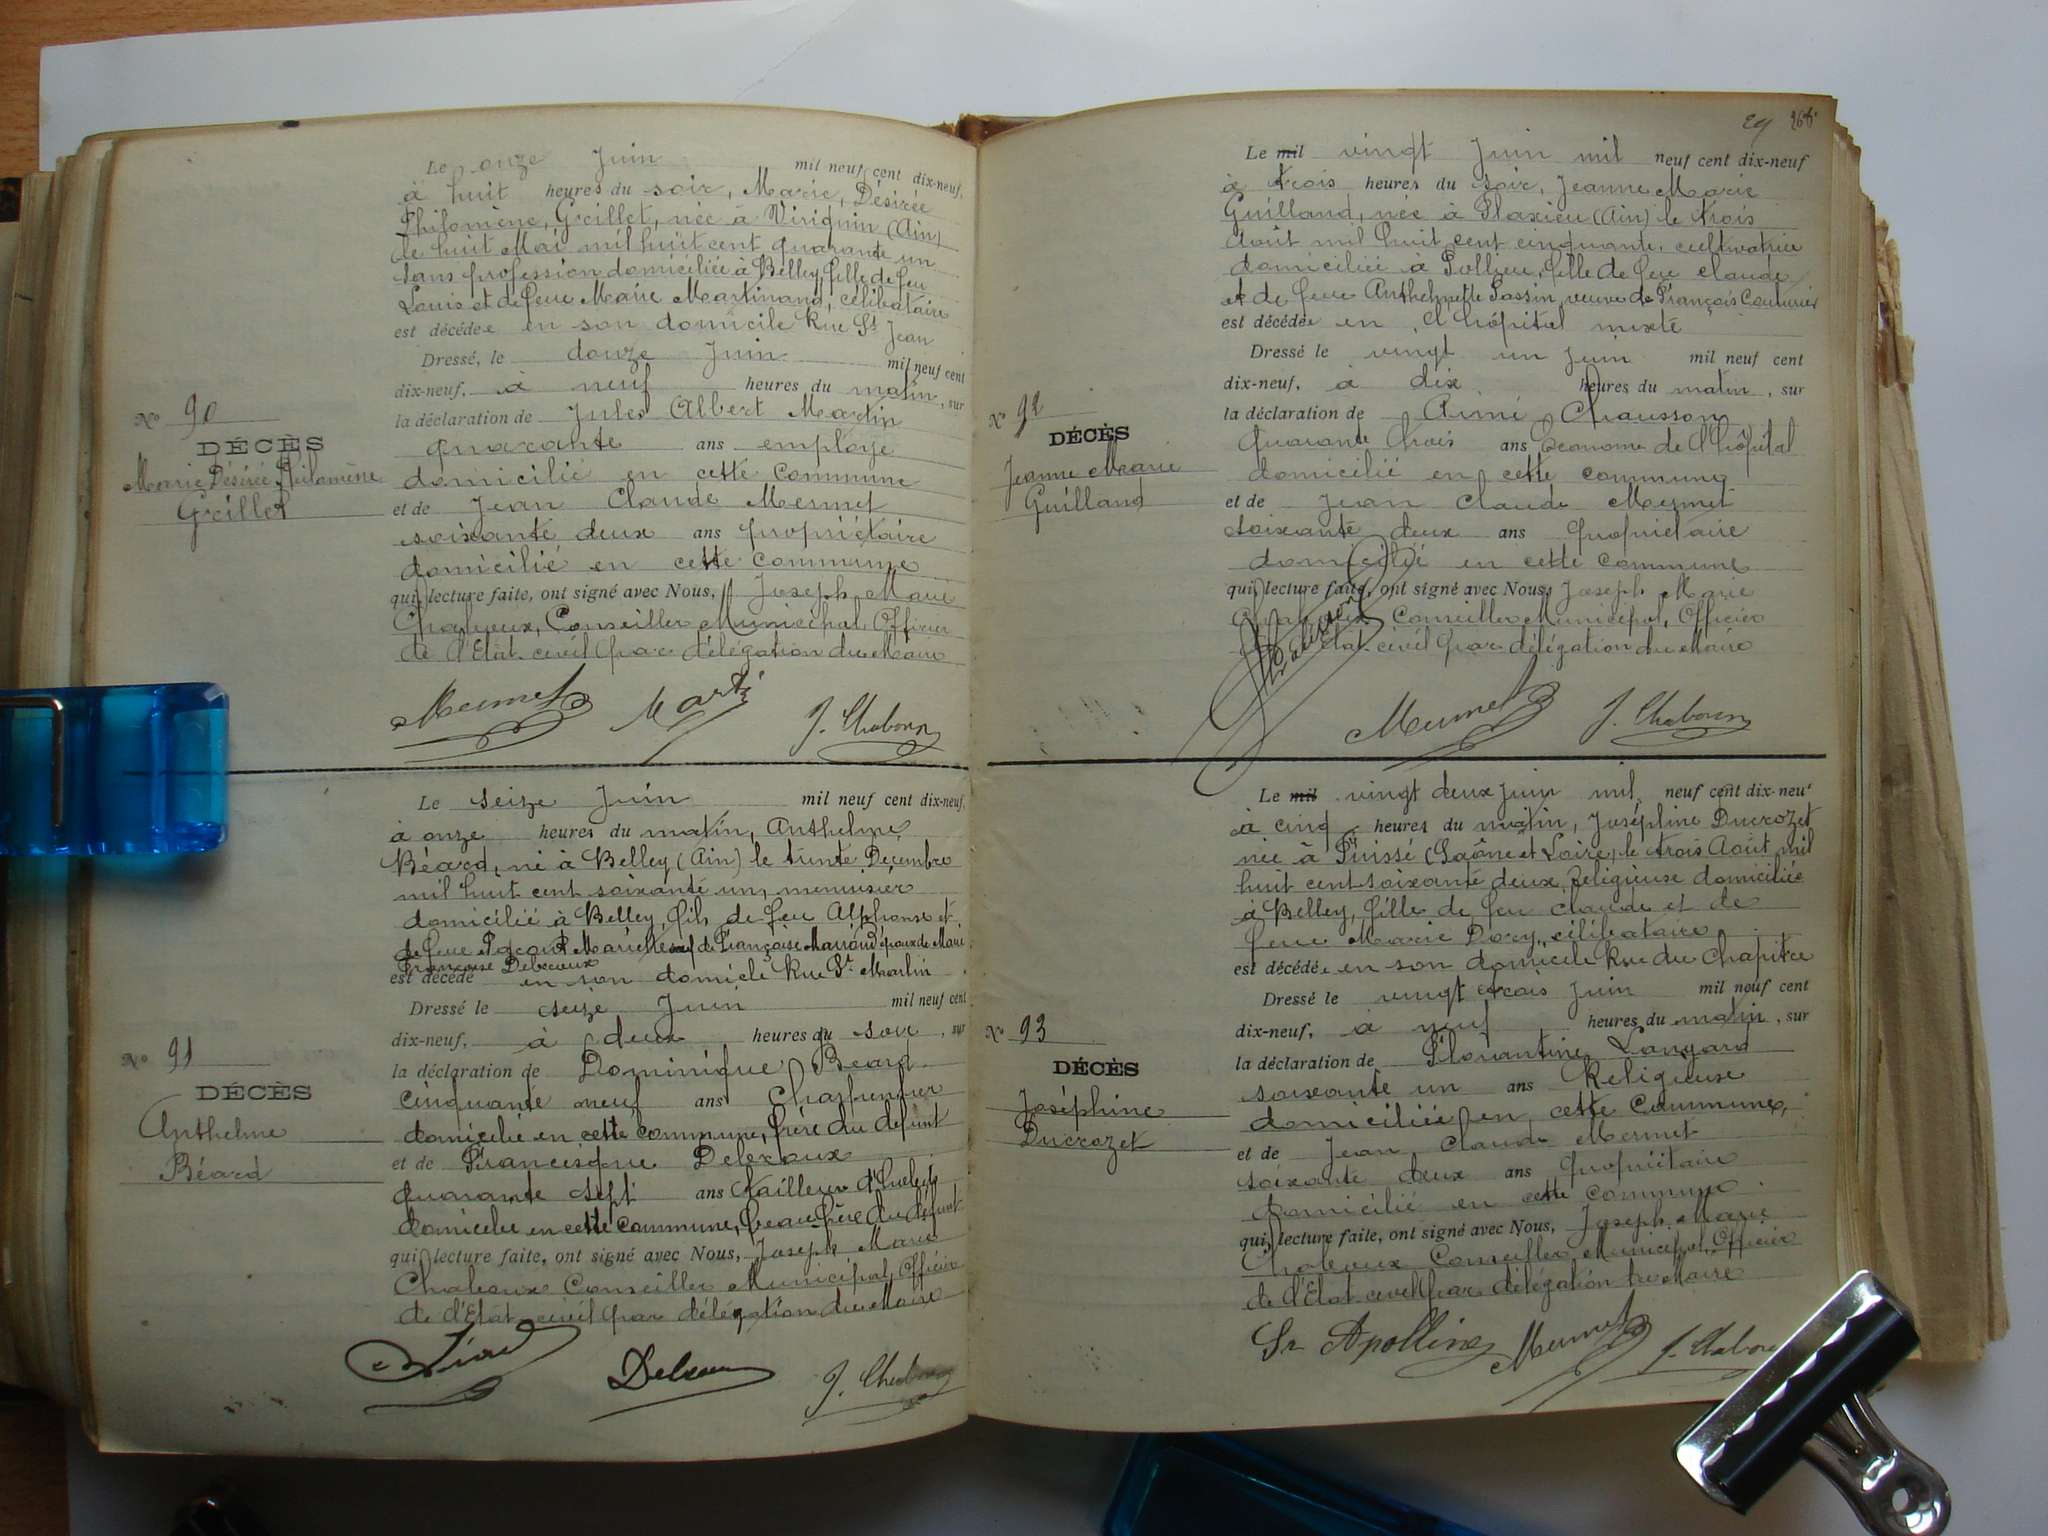 Le onze Juin mil neuf cent dix-neuf,
à huit heures du soir, Marie, Désirée
Philomène, Greillet, née à Virignin (Ain)
le huit Mai mil huit cent quarante un
sans profession domiciliée à Belley, fille de feu
Louis et de feue Marie Martinand, célibataire
est décédée en son domicile Rue St Jean
Dressé, le douze Juin mil neuf cent
dix-neuf, à neuf heures du matin, sur
la déclaration de Jules Albert Martin
quarante ans employé
domicilié en cette commune
et de Jean Claude Mermet
soixante deux ans propriétaire
domicilié en cette commune
qui, lecture faite, ont signé avec Nous, Joseph Marie
Conseiller Municipal, Officier
de l'Etat-civil par délégation du Maire
No 90
DÉCÈS
Marie Désirée Philomène
Greillet
Mermet Martin
Le seize Juin mil neuf cent dix-neuf,
à onze heures du matin, Anthelme
Béard, né à Belley (Ain) le trente Décembre
mil huit cent soixante un, menuisier
domicilié à Belley, fils de feu Alphonse et
de feue Mariette veuf de Françoise époux de Marie
Françoise
est décédé en son domicile Rue St Martin
Dressé le seize Juin mil neuf cent
dix-neuf, à deux heures du soir, sur
la déclaration de Dominique Béard
cinquante neuf ans Charpentier
domicilié en cette commune, frère du défunt
et de Francisque
quarante sept ans tailleur d'habits
domicilié en cette commune, beau-frère du défunt
qui, lecture faite, ont signé avec Nous, Joseph Marie
Conseiller Municipal, Officier
de l'Etat-civil par délégation du Maire
No 91
DÉCÈS
Anthelme
Béard
29
Le mil vingt Juin mil neuf cent dix-neuf
à trois heures du soir, Jeanne Marie
Guilland, née à (Ain) le trois
août mil huit cent cinquante, cultivatrice
domiciliée à Pollieu, fille de feu Claude
et de feue Anthelmette veuve de François Couturier
est décédée en l'hôpital mixte
Dressé le vingt un Juin mil neuf cent
dix-neuf, à dix heures du matin, sur
la déclaration de Aimé Chausson
quarante trois ans Économe de l'hôpital
domicilié en cette commune
et de Jean Claude Mermet
soixante deux ans propriétaire
domicilié en cette commune
qui, lecture faite, ont signé avec Nous, Joseph Marie
Conseiller Municipal, Officier
Etat-civil par délégation du Maire
No 92
DÉCÈS
Jeanne Marie
Guilland
Mermet
Le mil vingt deux Juin mil neuf cent dix-neuf
à cinq heures du matin, Joséphine Ducrozet
née à Fuissé (Saône et Loire) le trois Août mil
huit cent soixante deux, Religieuse domiciliée
à Belley, fille de feu Claude et de
feue Marie célibataire
est décédée en son domicile Rue du Chapitre
Dressé le vingt trois Juin mil neuf cent
dix-neuf, à neuf heures du matin, sur
la déclaration de
soixante un ans Religieuse
domiciliée en cette commune,
et de Jean Claude Mermet
soixante deux ans propriétaire
domicilié en cette commune
qui, lecture faite, ont signé avec Nous, Joseph Marie
Conseiller Municipal, Officier
de l'Etat-civil par délégation du Maire
No 93
DÉCÈS
Joséphine
Ducrozet
Sr Apolline Mermet